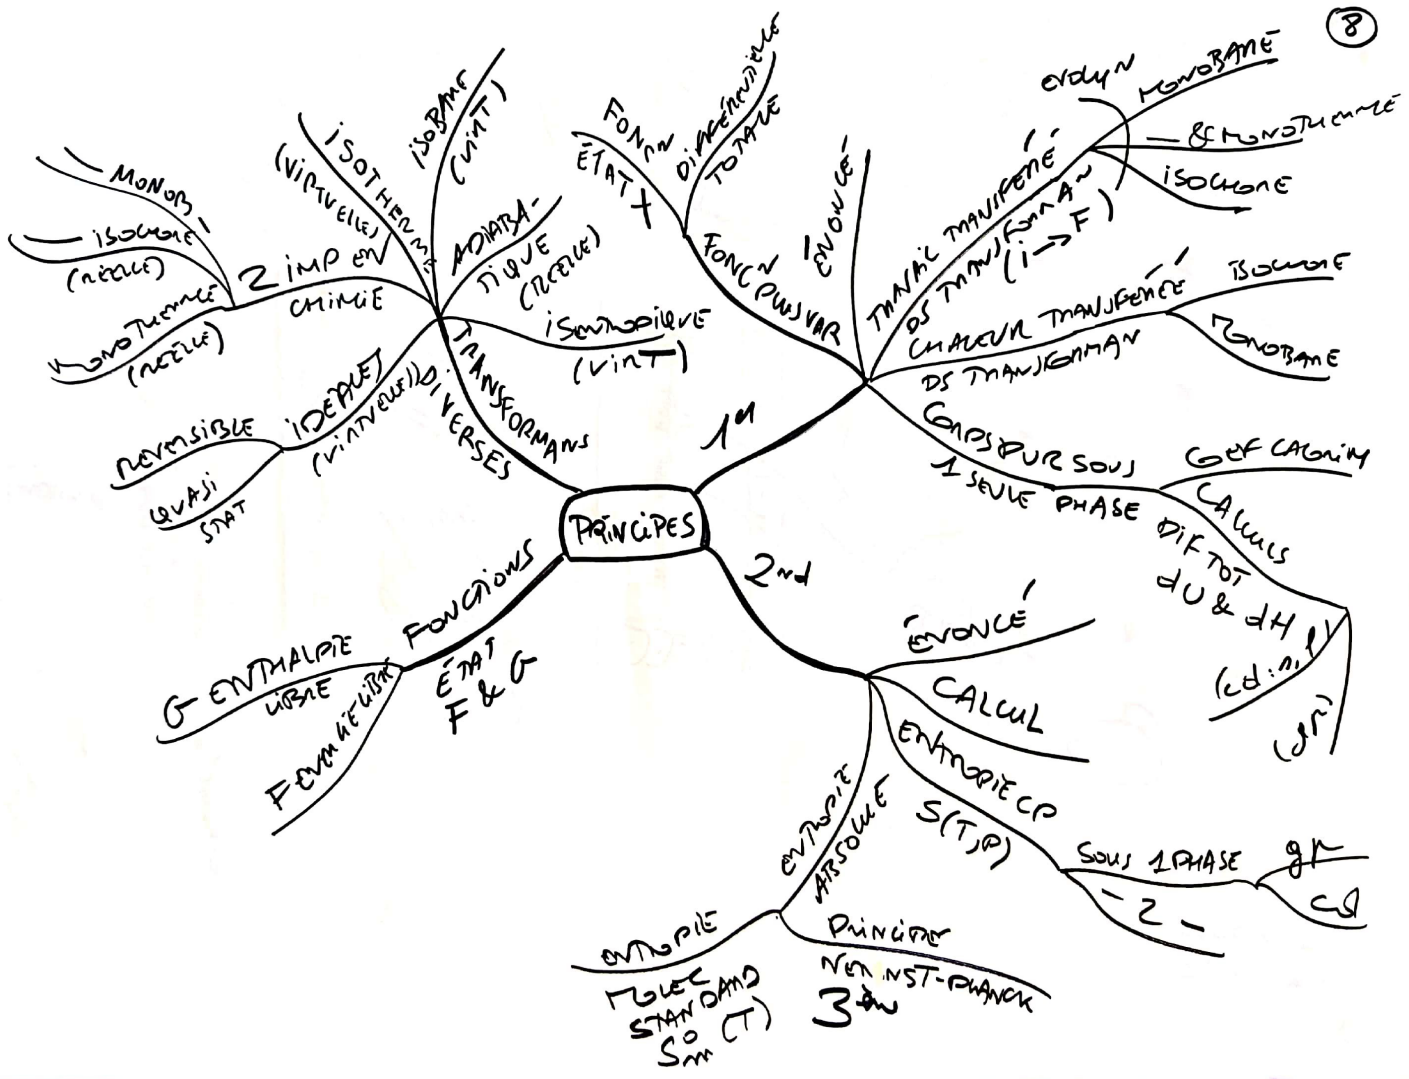 8
PRINCIPES
1er
FONCn PLUS VAR
FONCn
ÉTAT
DIFFÉRENTIELLE
TOTALE
ÉNONCÉ
TRAVAIL TRANSFÉRÉ
DS TRANSFORMAn
(i→F)
evolun
MONOBARE
— & MONOTHERME
ISOCHORE
CHALEUR TRANSFÉRÉE
DS TRANSFORMAN
ISOCHORE
MONOBARE
CORPS PUR SOUS
1 SEULE PHASE
COEF CALORIM
CALCULS
DIF TOT
dU & dH
2nd
ÉNONCÉ
CALCUL
ENTROPIE CP
S(T,P)
SOUS 1 PHASE
— 2 —
ENTROPIE
ABSOLUE
ENTROPIE
MOLEC
STANDARD
S°m (T)
PRINCIPE
NERNST-PLANCK
3èm
FONCTIONS
ÉTAT
F & G
G ENTHALPIE
LIBRE
F ENERGIE LIBRE
TRANSFORMANS
DIVERSES
IDÉALES
(VIRTUELLES)
REVERSIBLE
QUASI
STAT
2 IMP EN
CHIMIE
— MONOB —
— ISOCHORE
(RÉELLE)
MONOTHERME
(RÉELLE)
ISOTHERME
(VIRTUELLES)
ISOBARE
(VIRT)
ADIABA-
TIQUE
(RÉELLE)
ISENTROPIQUE
(VIRT)